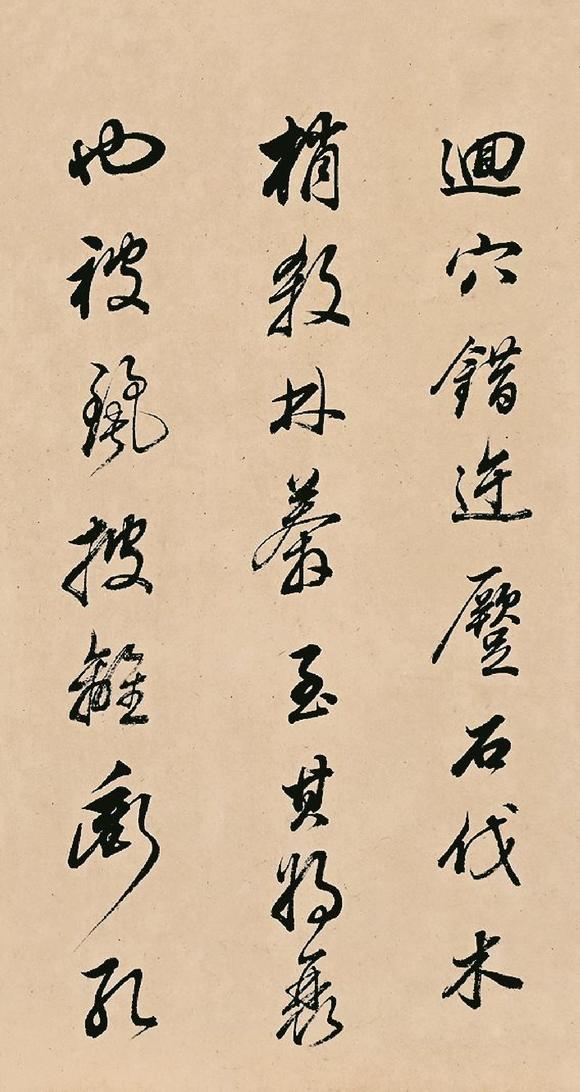 迴穴錯迕蹷石伐木
梢殺林莽至其將衰
也被麗披離衝孔